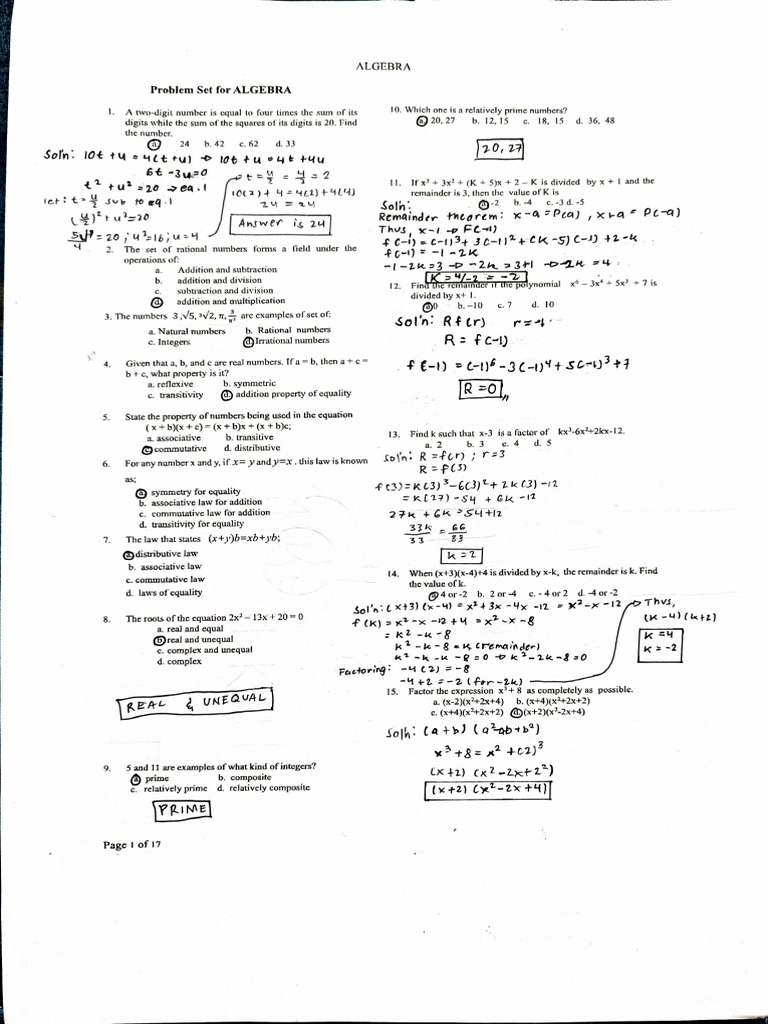 ALGEBRA
Problem Set for ALGEBRA
1. A two-digit number is equal to four times the sum of its
digits while the sum of the squares of its digits is 20. Find
the number.
a. 24 b. 42 c. 62 d. 33
Sol'n: 10t + u = 4(t + u) → 10t + u = 4t + 4u
6t - 3u = 0
t² + u² = 20 → eq. 1
let: t = u/2 sub to eq. 1
(u/2)² + u² = 20
5u²/4 = 20 ; u² = 16 ; u = 4
t = u/2 = 4/2 = 2
10(2) + 4 = 4(2) + 4(4)
24 = 24
Answer is 24
2. The set of rational numbers forms a field under the
operations of:
a. Addition and subtraction
b. addition and division
c. subtraction and division
d. addition and multiplication
3. The numbers 3 ,√5, ³√2, π, are examples of set of:
a. Natural numbers b. Rational numbers
c. Integers d. Irrational numbers
4. Given that a, b, and c are real numbers. If a = b, then a + c =
b + c, what property is it?
a. reflexive b. symmetric
c. transitivity d. addition property of equality
5. State the property of numbers being used in the equation
( x + b)(x + c) = (x + b)x + (x + b)c;
a. associative b. transitive
c. commutative d. distributive
6. For any number x and y, if x= y and y=x , this law is known
as;
a. symmetry for equality
b. associative law for addition
c. commutative law for addition
d. transitivity for equality
7. The law that states (x+y)b=xb+yb;
a. distributive law
b. associative law
c. commutative law
d. laws of equality
8. The roots of the equation 2x² – 13x + 20 = 0
a. real and equal
b. real and unequal
c. complex and unequal
d. complex
REAL & UNEQUAL
9. 5 and 11 are examples of what kind of integers?
a. prime b. composite
c. relatively prime d. relatively composite
PRIME
Page 1 of 17
10. Which one is a relatively prime numbers?
a. 20, 27 b. 12, 15 c. 18, 15 d. 36, 48
20, 27
11. If x³ + 3x² + (K + 5)x + 2 – K is divided by x + 1 and the
remainder is 3, then the value of K is
a. -2 b. -4 c. -3 d. -5
Soln:
Remainder theorem: x-a = P(a) , x+a = P(-a)
Thus, x-1 → F(-1)
f(-1) = (-1)³ + 3(-1)² + (K-5)(-1) + 2-K
f(-1) = -1 - 2K
-1 - 2K = 3 → -2K = 3+1 → -2K = 4
K = 4/-2 = -2
12. Find the remainder if the polynomial x⁶ – 3x⁴ + 5x³ + 7 is
divided by x+ 1.
a. 0 b. –10 c. 7 d. 10
Sol'n: R f(r) r = -1
R = f(-1)
f(-1) = (-1)⁶ - 3(-1)⁴ + 5(-1)³ + 7
R = 0
13. Find k such that x-3 is a factor of kx³-6x²+2kx-12.
a. 2 b. 3 c. 4 d. 5
sol'n: R = f(r) ; r = 3
R = f(3)
f(3) = K(3)³ - 6(3)² + 2K(3) - 12
= K(27) - 54 + 6K - 12
27K + 6K = 54 + 12
33K/33 = 66/33
k = 2
14. When (x+3)(x-4)+4 is divided by x-k, the remainder is k. Find
the value of k.
a. 4 or -2 b. 2 or -4 c. - 4 or 2 d. -4 or -2
Sol'n: (x+3) (x-4) = x² + 3x - 4x - 12 = x² - x - 12
f(K) = x² - x - 12 + 4 = x² - x - 8
= K² - K - 8
K² - K - 8 = K (remainder)
K² - K - K - 8 = 0 → K² - 2K - 8 = 0
Factoring: -4(2) = -8
-4 + 2 = -2 (for -2K)
Thus,
(K-4)(K+2)
K = 4
K = -2
15. Factor the expression x³ + 8 as completely as possible.
a. (x-2)(x²+2x+4) b. (x+4)(x²+2x+2)
c. (x+4)(x²+2x+2) d. (x+2)(x²-2x+4)
Soln: (a+b) (a²-ab+b²)
x³ + 8 = x² + (2)³
(x+2) (x² - 2x + 2²)
(x+2) (x² - 2x + 4)